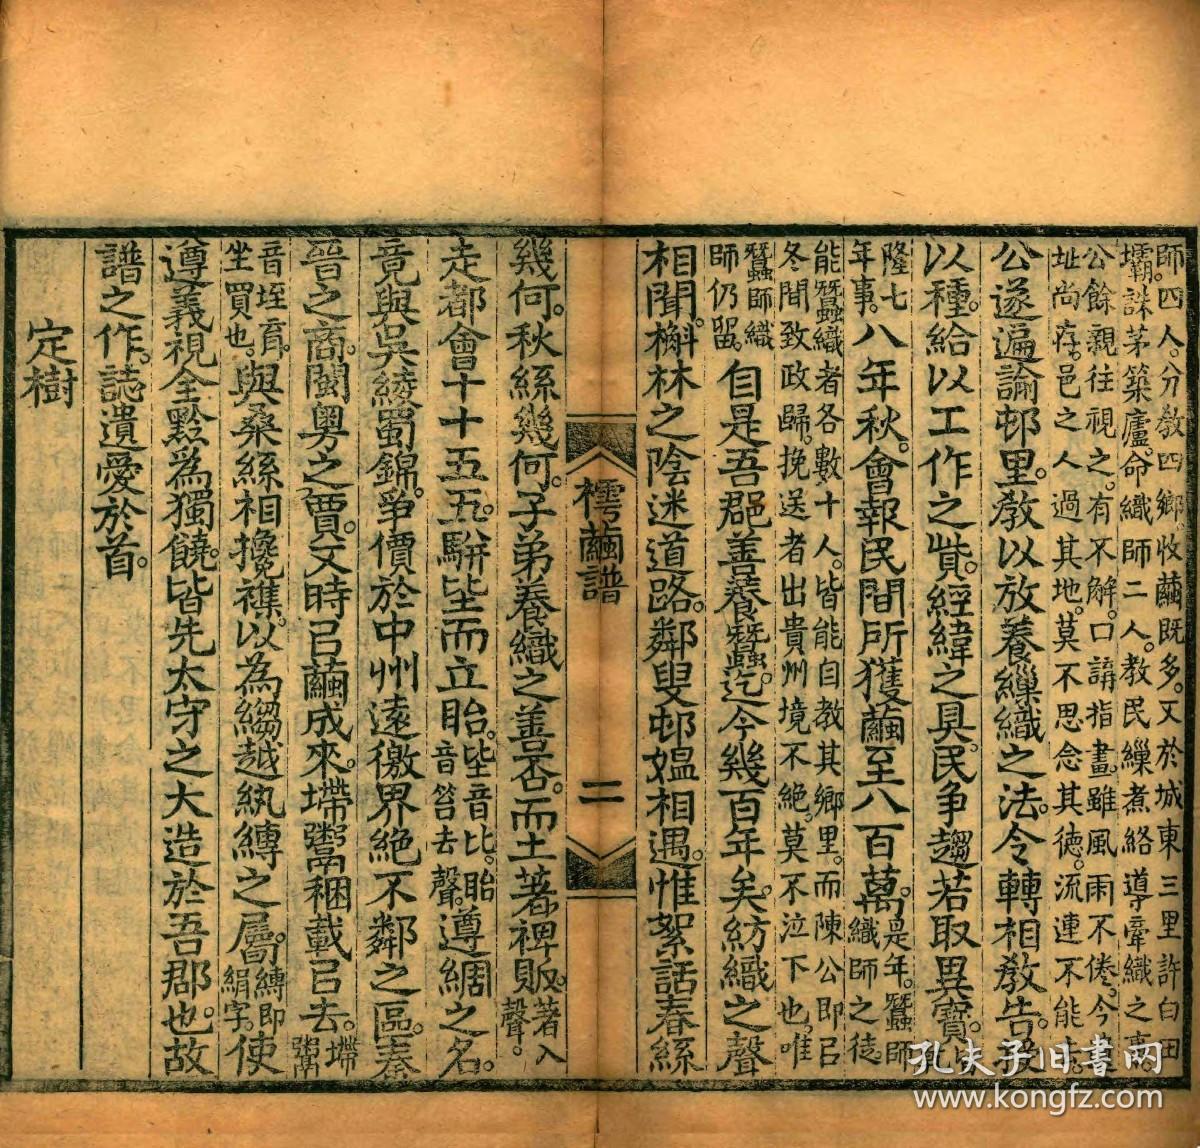 師。四人。分教四鄉。收繭既多。又於城東三里許白田
壩。誅茅築廬。命織師二人。教民繅煮絡導牽織之事。
公餘親往視之。有不解。口講指畫。雖風雨不倦。今
址尚存。邑之人過其地。莫不思念其德。流連不能去。
公遂遍諭邨里。教以放養繅織之法。令轉相教告。授
以種。給以工作之貲。經緯之具。民爭趨若取異寶。
隆七
年事。八年秋。會報民間所獲繭至八百萬。是年。蠶師
織師之徒
能蠶織者各數十人。皆能自教其鄉里。而陳公即㠯
冬閒致政歸。挽送者出貴州境不絕。莫不泣下也。唯
蠶師織
師仍留。自是吾郡善養蠶。迄今幾百年矣。紡織之聲
相聞。槲林之陰迷道路。鄰叟邨媼相遇。惟絮話春絲
樗繭譜 二
幾何。秋絲幾何。子弟養織之善否。而土著裨販。著入
聲。
走都會十十五五。駢坒而立眙。坒音比。眙
音笞去聲。遵綢之名。
竟與吳綾蜀錦。爭價於中州遠徼界絕不鄰之區。秦
晉之商。閩粵之賈。又時㠯繭成來。墆鬻捆載㠯去。墆
鬻
音垤育。
坐買也。與桑絲相攙襍。以為縐越紈縳之屬。縳即
絹字。使
遵義視全黔為獨饒。皆先太守之大造於吾郡也。故
譜之作。誌遺愛於首。
定樹
孔夫子旧書网
www.kongfz.com